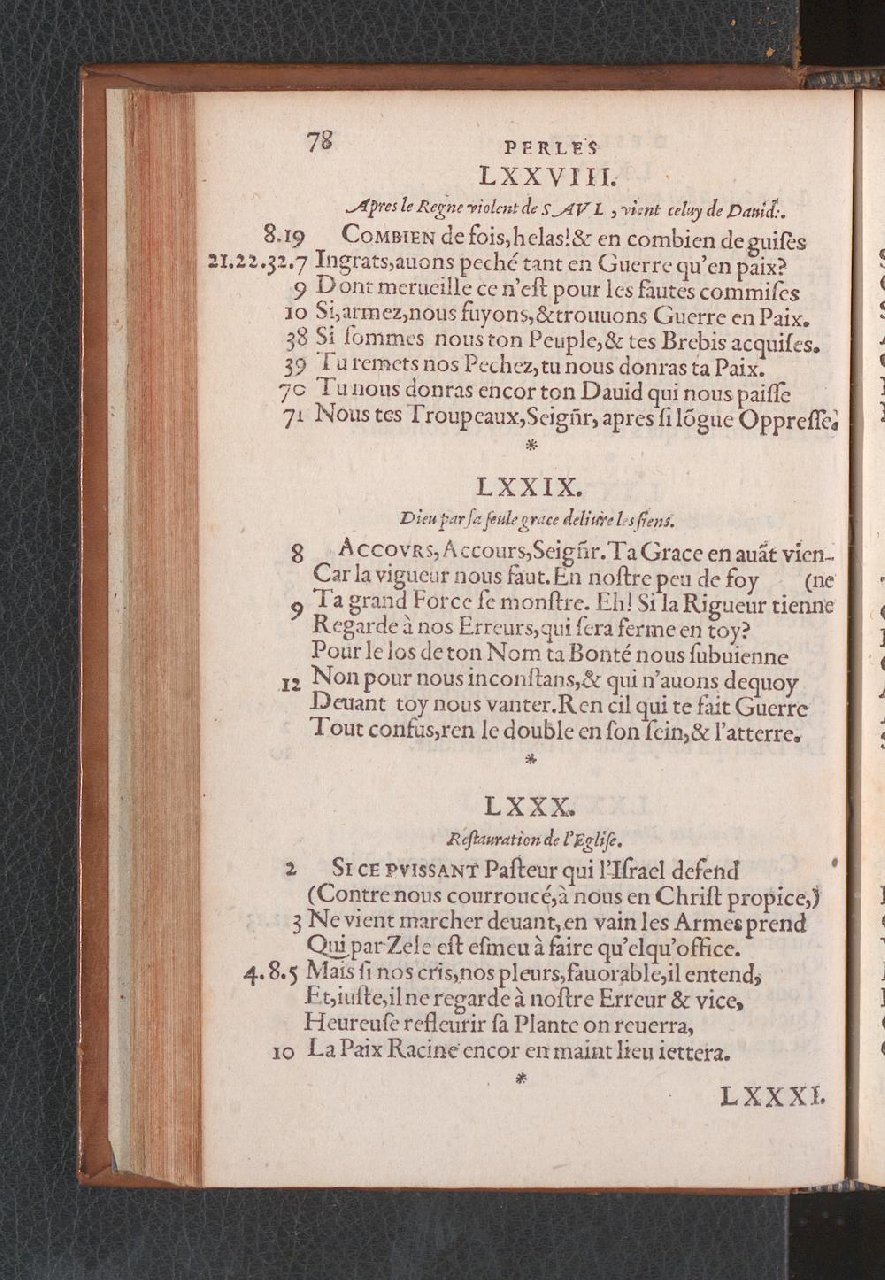 78
PERLES
LXXVIII.
Apres le Regne violent de SAVL, vient celuy de Dauid.
8.19 COMBIEN de fois, helas! & en combien de guiſes
21.22.32.7 Ingrats, auons peché tant en Guerre qu'en paix?
9 Dont merueille ce n'eſt pour les fautes commiſes
10 Si, armez, nous fuyons, & trouuons Guerre en Paix.
38 Si ſommes nous ton Peuple, & tes Brebis acquiſes.
39 Tu remets nos Pechez, tu nous donras ta Paix.
70 Tu nous donras encor ton Dauid qui nous paiſſe
71 Nous tes Troupeaux, Seigñr, apres ſi lõgue Oppreſſe.
*
LXXIX.
Dieu par ſa ſeule grace deliure les ſiens.
8 ACCOVRS, Accours, Seigñr. Ta Grace en auãt vien-
Car la vigueur nous faut. En noſtre peu de foy (ne
9 Ta grand Force ſe monſtre. Eh! Si la Rigueur tienne
Regarde à nos Erreurs, qui ſera ferme en toy?
Pour le los de ton Nom ta Bonté nous ſubuienne
12 Non pour nous inconſtans, & qui n'auons dequoy
Deuant toy nous vanter. Ren cil qui te fait Guerre
Tout confus, ren le double en ſon ſein, & l'atterre.
*
LXXX.
Reſtauration de l'Egliſe.
2 SI CE PVISSANT Paſteur qui l'Iſrael defend
(Contre nous courroucé, à nous en Chriſt propice,)
3 Ne vient marcher deuant, en vain les Armes prend
Qui par Zele eſt eſmeu à faire qu'elqu'office.
4.8.5 Mais ſi nos cris, nos pleurs, fauorable, il entend,
Et, iuſte, il ne regarde à noſtre Erreur & vice,
Heureuſe refleurir ſa Plante on reuerra,
10 La Paix Racine encor en maint lieu iettera.
*
LXXXI.